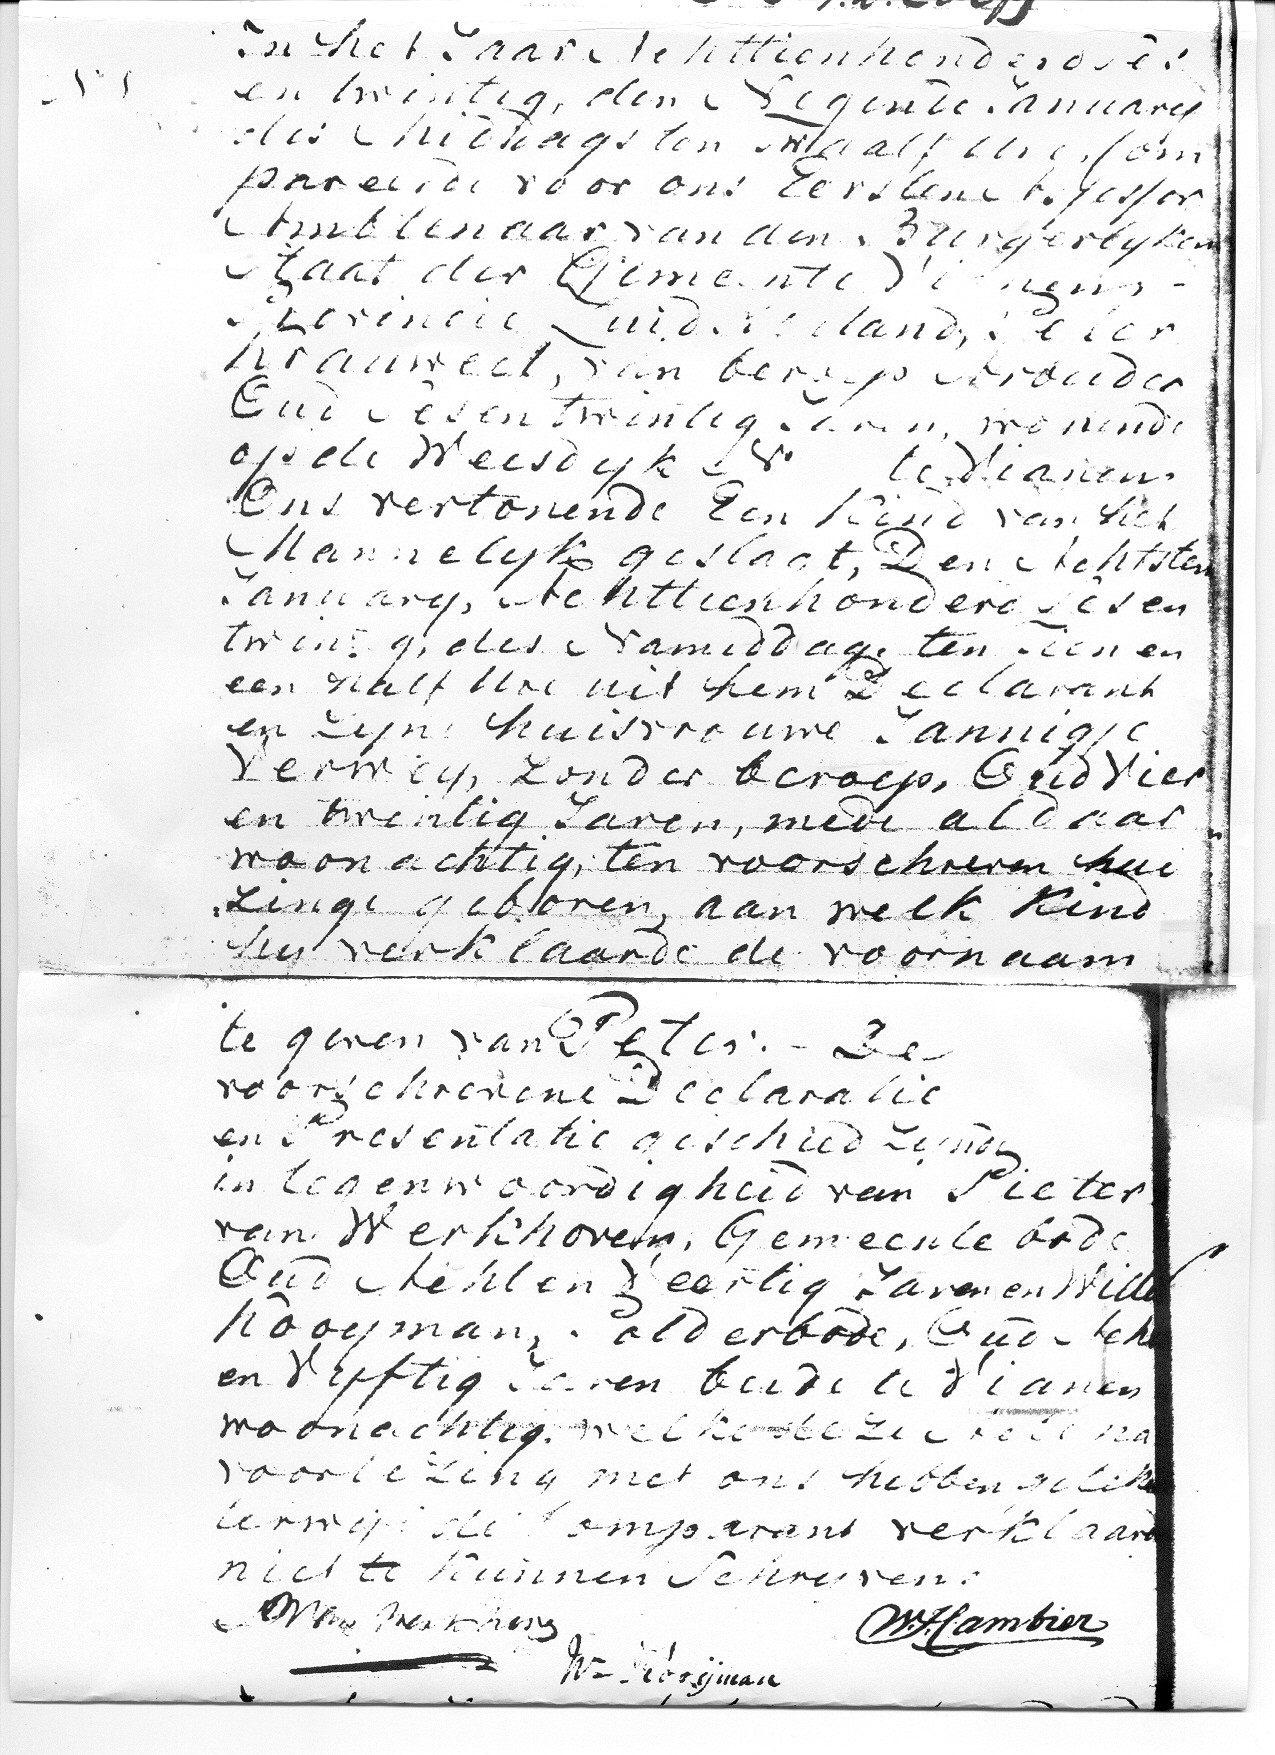 In het Jaar Achttienhonderd ses
No 1
en twintig, den Negende January
des Middags ten twaalf Ure, Com
pareerde voor ons Eersten Assessor
Ambtenaar van den Burgerlyken
Staat der Gemeente Vianen
Provincie Zuid Holland, Peter
Krauweel, van beroep Arbeider
Oud Sesentwintig Jaren, wonende
op de Weesdyk No te Vianen
Ons vertonende Een Kind van het
Mannelyk geslagt, Den Achtsten
January, Achttienhonderd Sesen
twintig, des Namiddags ten een en
een half Ure uit hem Declarant
en Zyne huisvrouwe Jannigje
Verwey, zonder beroep, Oud Vier
en twintig Jaren, mede aldaar
woonachtig, ten voorschreven hui
zinge geboren, aan welk Kind
hy verklaarde de voornaam
te geven van Peter. - De
voorschrevene Declaratie
en Presentatie geschied zynde
in tegenwoordigheid van Pieter
van Werkhoven, Gemeente bode
Oud Achten Veertig Jaren en Willem
Kooyman, Polderbode, Oud Acht
en Vyftig Jaren beide te Vianen
woonachtig, welke deze Acte na
voorlezing met ons hebben geteken
terwyl de Comparant verklaarde
niet te kunnen Schryven.
van Werkhoven
W.F. Cambier
Wm Kooijman